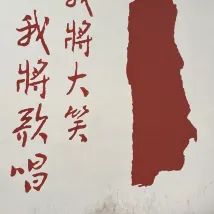 我將大笑
我將歌唱